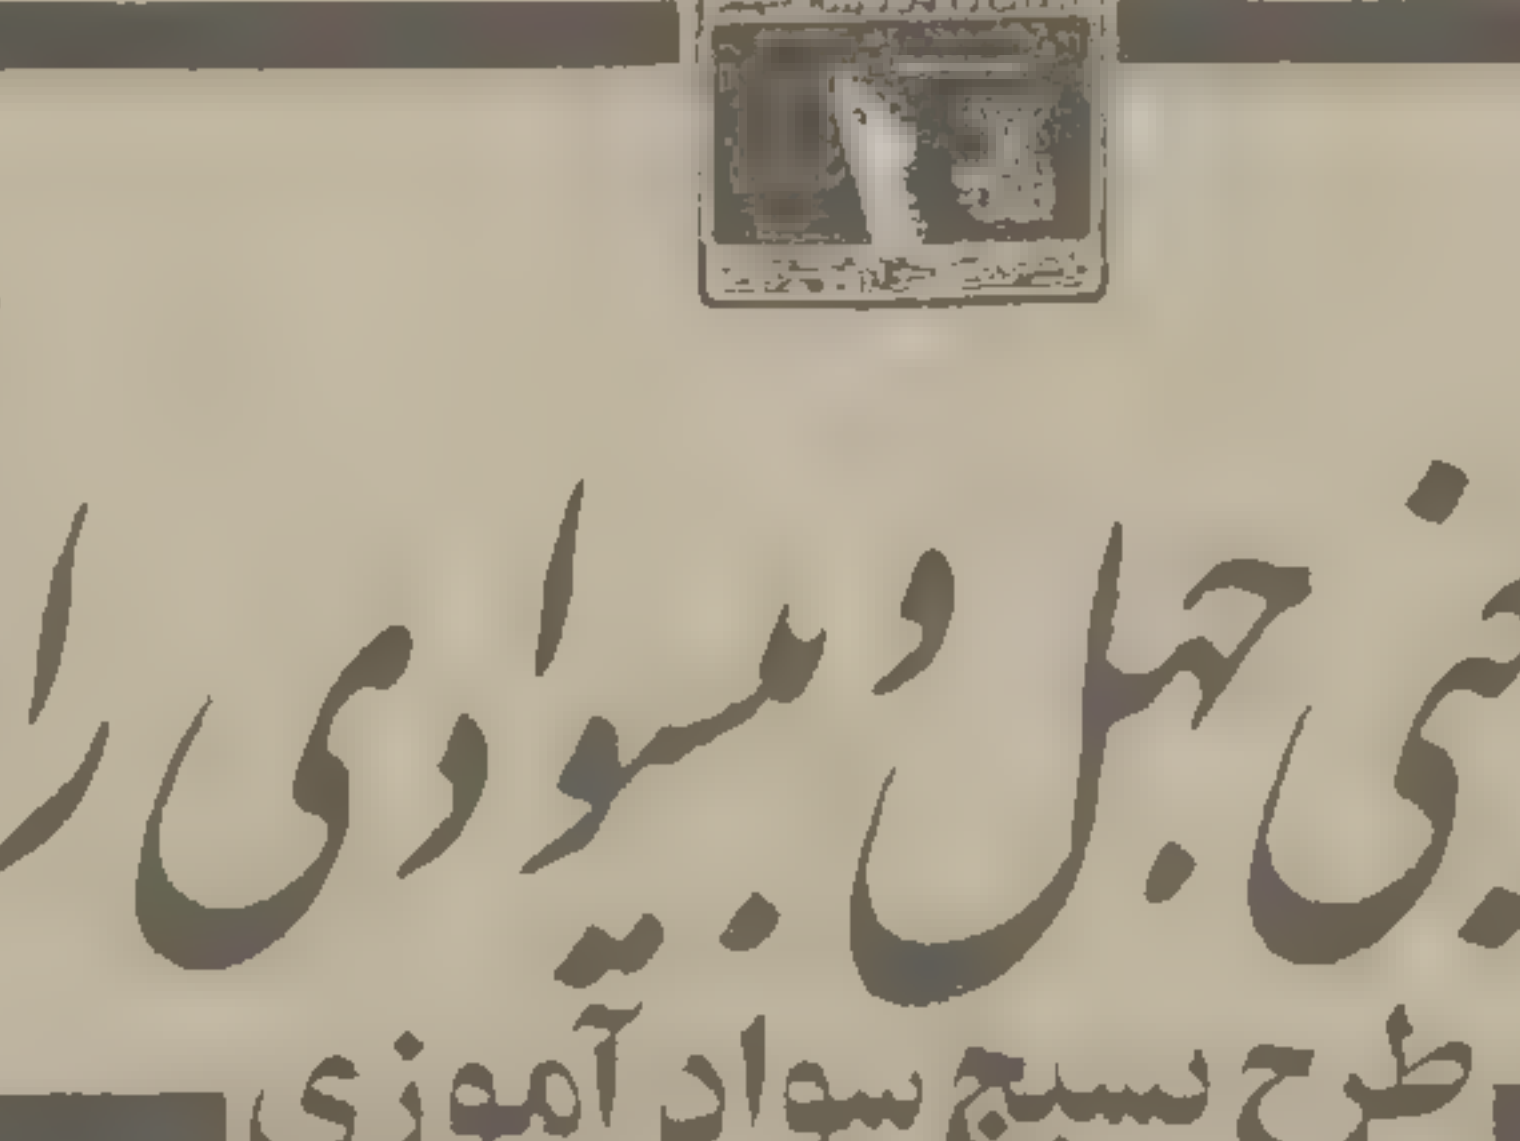 جهل و بیسوادی را
طرح بسیج سواد آموزی